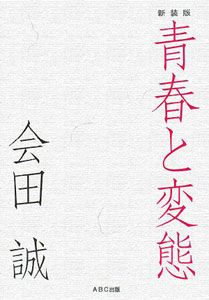 新装版
青春と変態
会田 誠
ABC出版